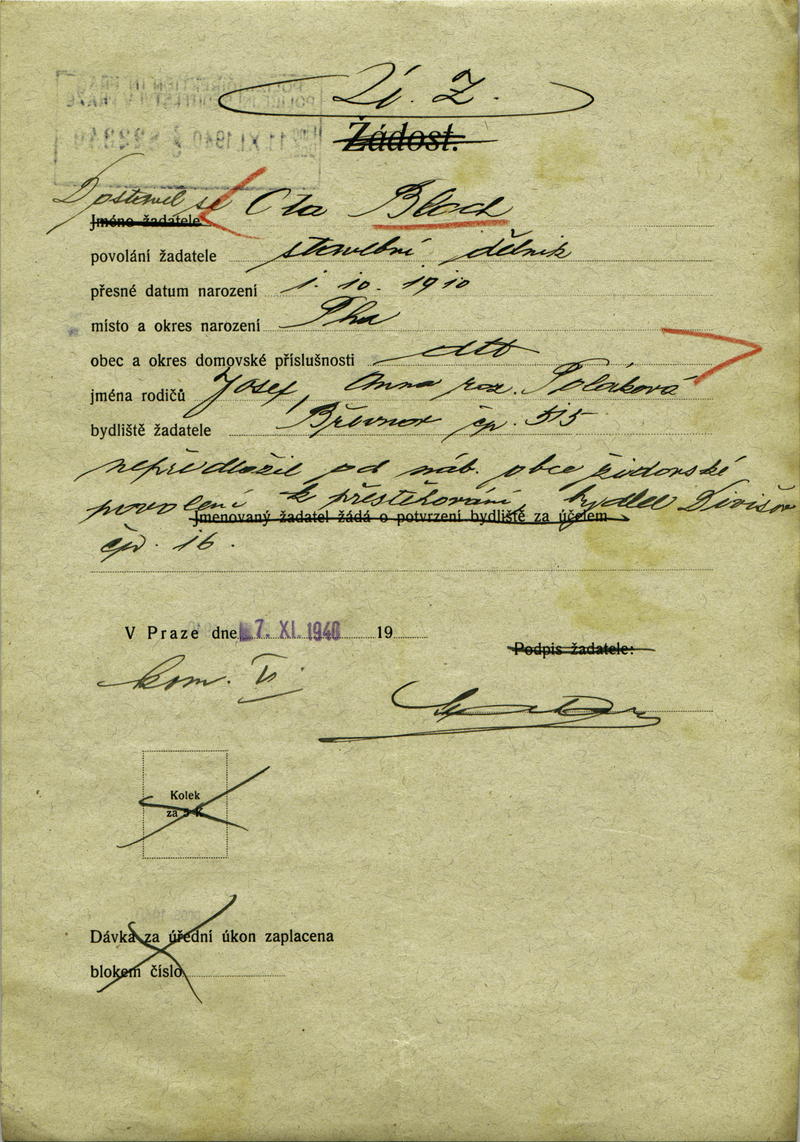 Ú. Z.
Žádost.
Dostavil se Ota Bloch
Jméno žadatele
povolání žadatele stavební dělník
přesné datum narození 1. 10. 1910
místo a okres narození Pha
obec a okres domovské příslušnosti dtto
jména rodičů Josef, Anna roz. Poláková
bydliště žadatele Břevnov čp. 515
nepředložil od náb. obce židovské
povolení k přestěhování, bydlel Divišov
Jmenovaný žadatel žádá o potvrzení bydliště za účelem
čp. 16.
V Praze dne 7. XI. 1940 19
Podpis žadatele:
kom. VI.
Kolek
za 5 K
Dávka za úřední úkon zaplacena
blokem číslo